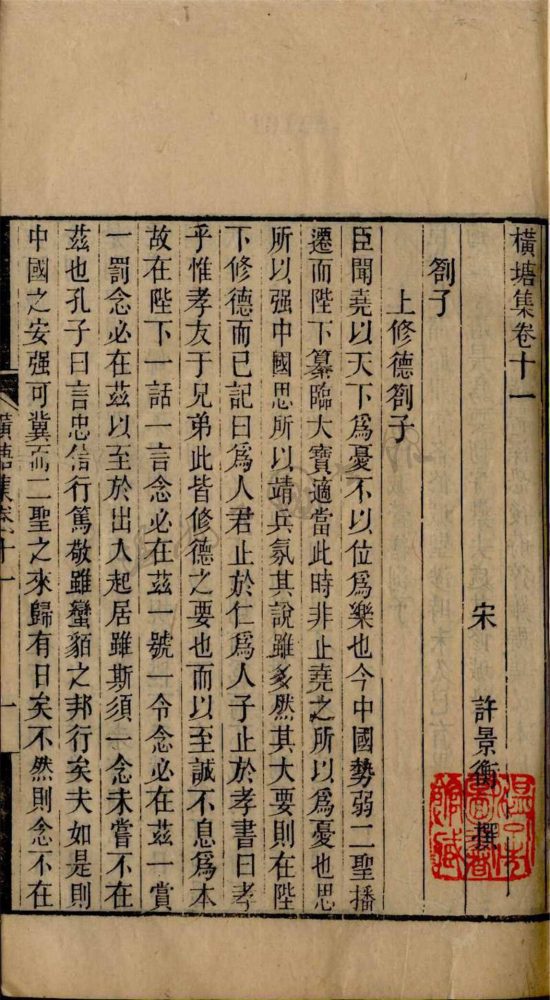 橫塘集卷十一
宋 許景衡 撰
劄子
上修德劄子
臣聞堯以天下爲憂不以位爲樂也今中國勢弱二聖播
遷而陛下纂臨大寶適當此時非止堯之所以爲憂也思
所以强中國思所以靖兵氛其說雖多然其大要則在陛
下修德而已記曰爲人君止於仁爲人子止於孝書曰孝
乎惟孝友于兄弟此皆修德之要也而以至誠不息爲本
故在陛下一話一言念必在茲一號一令念必在茲一賞
一罰念必在茲以至於出入起居雖斯須一念未嘗不在
茲也孔子曰言忠信行篤敬雖蠻貊之邦行矣夫如是則
中國之安强可冀而二聖之來歸有日矣不然則念不在
橫塘集卷十一
一